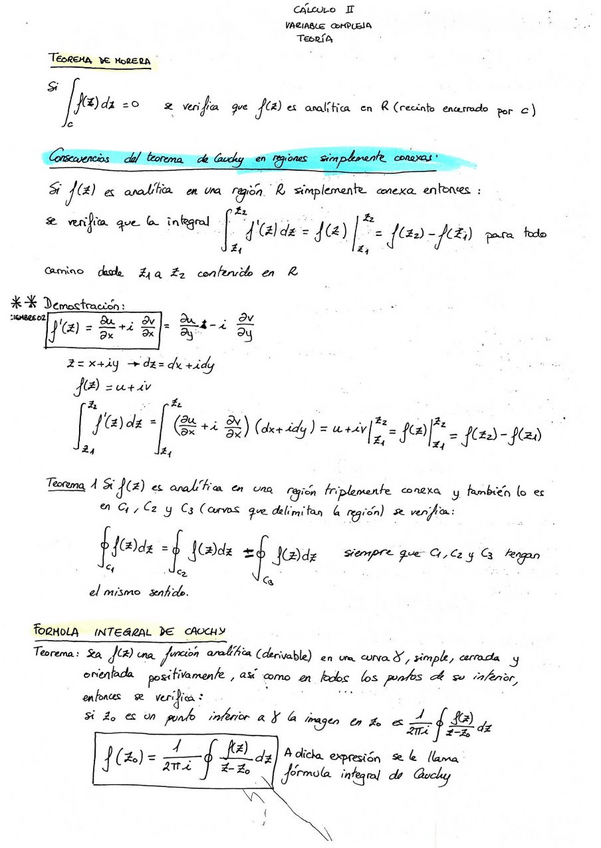 CÁLCULO II
VARIABLE COMPLEJA
TEORÍA
TEOREMA DE MORERA
Si ∫_C f(z) dz = 0 se verifica que f(z) es analítica en R (recinto encerrado por c)
Consecuencias del teorema de Cauchy en regiones simplemente conexas:
Si f(z) es analítica en una región R simplemente conexa entonces:
se verifica que la integral ∫_{z1}^{z2} f'(z) dz = f(z) |_{z1}^{z2} = f(z2) - f(z1) para todo
camino desde z1 a z2 contenido en R
** Demostración:
f'(z) = ∂u/∂x + i ∂v/∂x = ∂u/∂y - i ∂v/∂y
z = x + iy → dz = dx + idy
f(z) = u + iv
∫_{z1}^{z2} f'(z) dz = ∫_{z1}^{z2} (∂u/∂x + i ∂v/∂x) (dx + idy) = u + iv |_{z1}^{z2} = f(z) |_{z1}^{z2} = f(z2) - f(z1)
Teorema 1 Si f(z) es analítica en una región triplemente conexa y también lo es
en C1, C2 y C3 (curvas que delimitan la región) se verifica:
∮_{C1} f(z) dz = ∮_{C2} f(z) dz ± ∮_{C3} f(z) dz siempre que C1, C2 y C3 tengan
el mismo sentido.
FORMOLA INTEGRAL DE CAUCHY
Teorema: Sea f(z) una función analítica (derivable) en una curva γ, simple, cerrada y
orientada positivamente, así como en todos los puntos de su interior,
entonces se verifica:
si z0 es un punto interior a γ la imagen en z0 es 1/2πi ∮ f(z)/z-z0 dz
f(z0) = 1/2πi ∮ f(z)/z-z0 dz A dicha expresión se le llama
fórmula integral de Cauchy